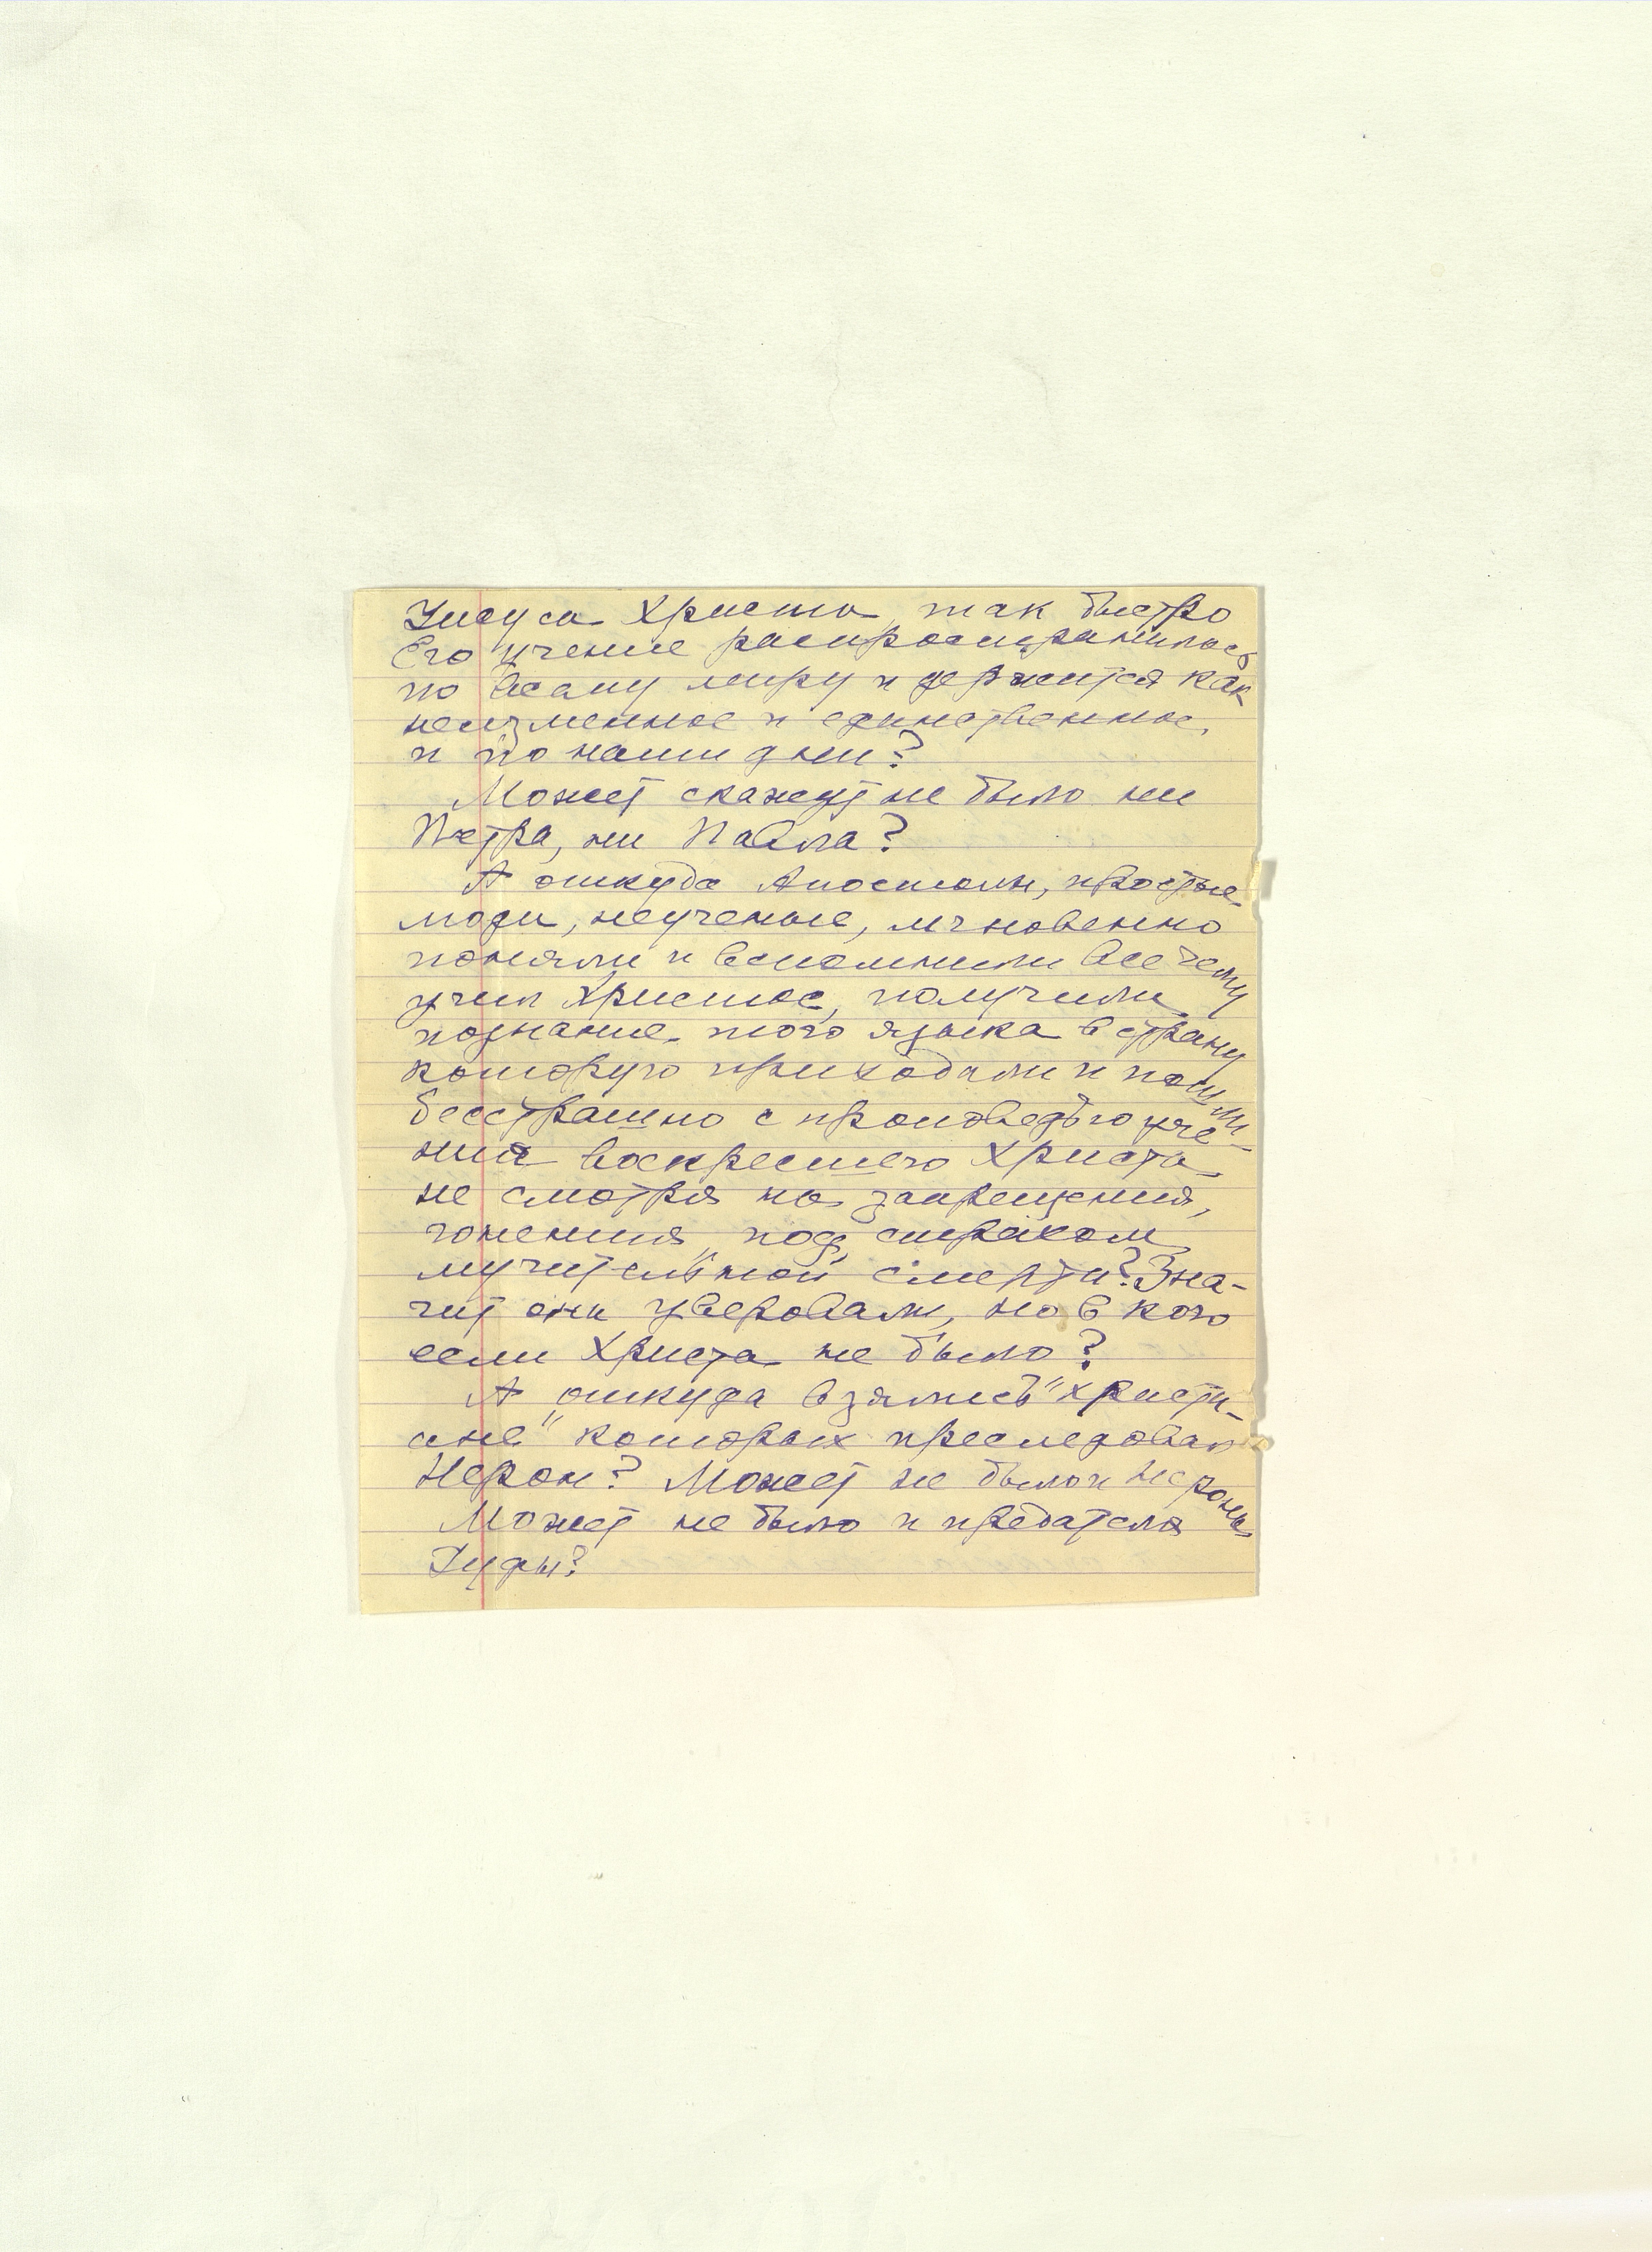 Иисуса Христа, так быстро
Его учение распространилось
по всему миру и держится как
неизменное и единственное,
и по наши дни?
Может скажут не было ни
Петра, ни Павла?
А откуда Апостолы, простые
люди, неученые, мгновенно
поняли и вспомнили все чему
учил Христос, получили
познание того языка в страну
которую приходили и пошли
бесстрашно с проповедью уче-
ния воскресшего Христа
не смотря на запрещения,
гонения, под страхом
мучительной смерти? Зна-
чит они уверовали, но в кого
если Христа не было?
А откуда взялись "христи-
ане" которых преследовал
Нерон? Может не было и Нерона
Может не было и предателя
Иуды?